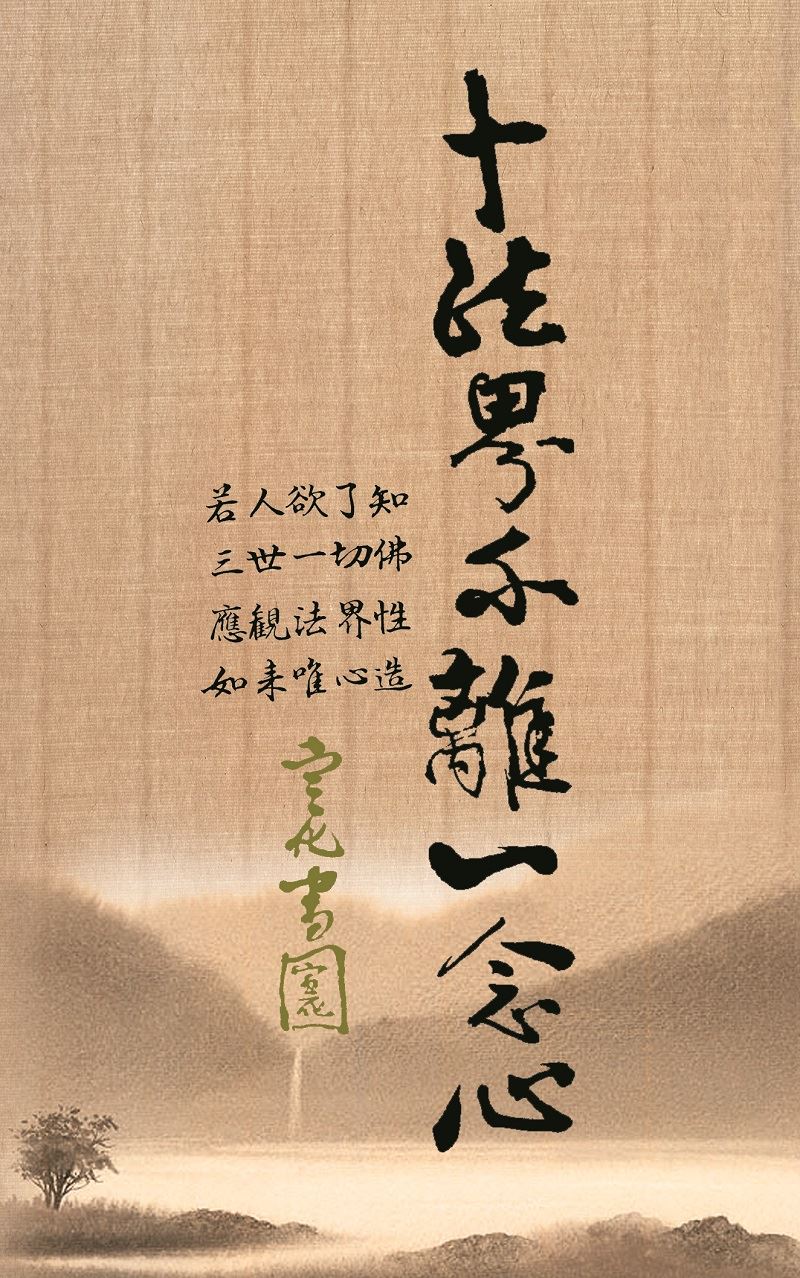 十法界不離一念心
若人欲了知
三世一切佛
應観法界性
如来唯心造
宣化書
宣化